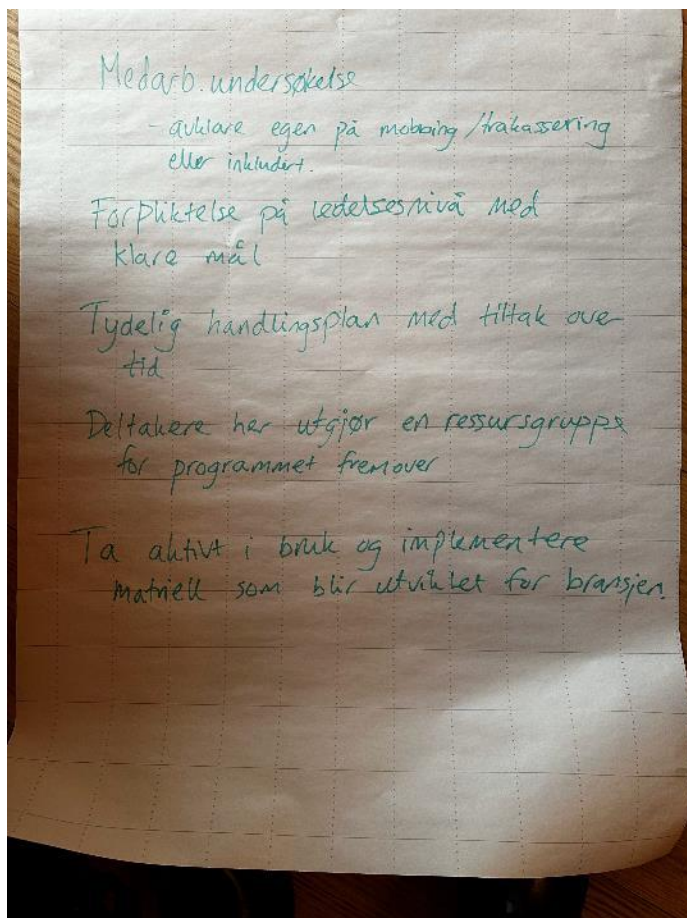 Medarb. undersøkelse
- avklare egen på mobbing / trakassering
eller inkludert.
Forpliktelse på ledelsesnivå med
klare mål
Tydelig handlingsplan med tiltak over
tid
Deltakere her utgjør en ressursgruppe
for programmet fremover
Ta aktivt i bruk og implementere
matriell som blir utviklet for bransjen.